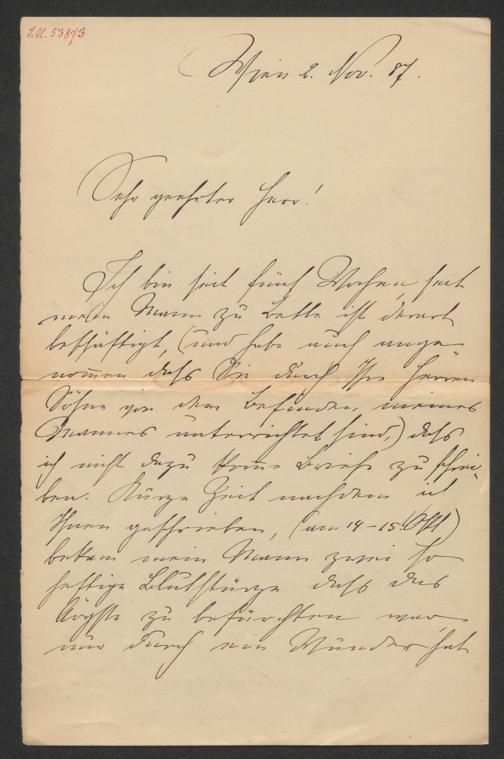 I.N. 53873
Wien 2. Nov. 87.
Sehr geehrter Herr!
Ich bin seit fünf Wochen, seit
mein Mann zu Bette ist derart
beschäftigt, (und habe auch ange-
nom̅en daß Sie durch Ihre Herren
Söhne von dem Befinden, meines
Mannes unterrichtet sind,) daß
ich nicht dazu kom̅e Briefe zu schrei-
ben. Kurze Zeit nachdem ich
Ihnen geschrieben, (am 14-15. Okt)
bekam mein Mann zwei so
heftige Blutstürze daß das
Ärgste zu befürchten war
nur durch ein Wunder hat